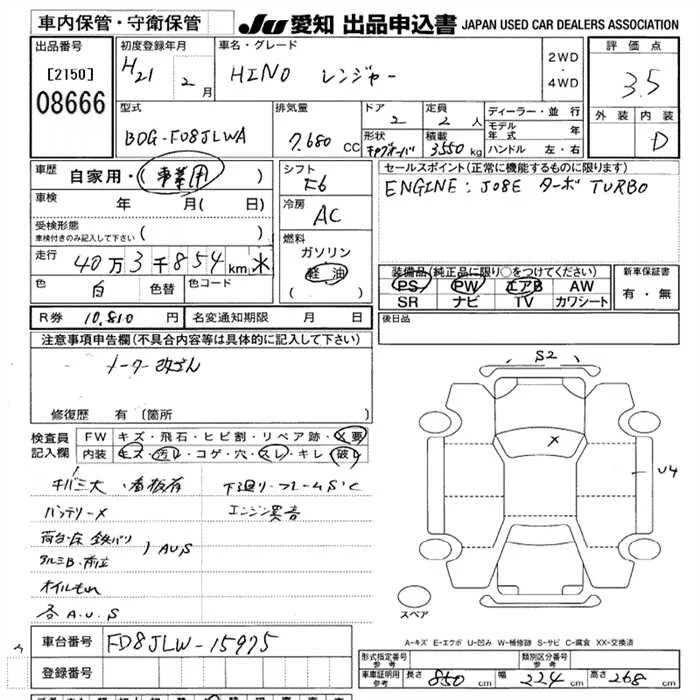 車内保管・守衛保管
JU 愛知 出品申込書 JAPAN USED CAR DEALERS ASSOCIATION
出品番号
[2150]
08666
初度登録年月
H21 2月
車名・グレード
HINO レンジャー
2WD
・
4WD
評価点
3.5
外装 内装
D
型式
BDG-FD8JLWA
排気量
7.680 CC
ドア
2
定員
2 人
形状
キャブオーバ
積載
3550 kg
ディーラー・並行
モデル年式 年
ハンドル 左・右
車歴
自家用・(事業用)
車検 年 月( 日)
受検形態
車検付きのみ記入して下さい ( )
走行
40万3千854km
色
白
色替
色コード
シフト
F6
冷房
AC
燃料
ガソリン
軽油
( )
セールスポイント(正常に機能するものに限ります)
ENGINE: J08E ターボ TURBO
装備品(純正品に限り○をつけてください)
PS PW エアB AW
SR ナビ TV カワシート
新車保証書
有・無
R券 10,810 円
名変通知期限 月 日
後日品
注意事項申告欄(不具合内容等は具体的に記入して下さい)
メーター改ざん
修復歴 有 (箇所
検査員記入欄
FW キズ・飛石・ヒビ割・リペア跡・X要
内装 キズ・汚レ・コゲ・穴・スレ・キレ・破レ
キバミ大 ・看板有
下廻り・フレームS'C
バッテリーX
エンジン異音
荷台・床 鉄バリ
アルミB・前立
) AUS
オイルもれ
各 A.U.S
S2
X
U4
スペア
A-キズ E-エクボ U-凹み W-補修跡 S-サビ C-腐食 XX-交換済
車台番号
FD8JLW-15975
登録番号
形式指定番号
参考
類別区分番号
参考
車庫証明用
参考
長さ 850 cm
幅 224 cm
高さ 268 cm